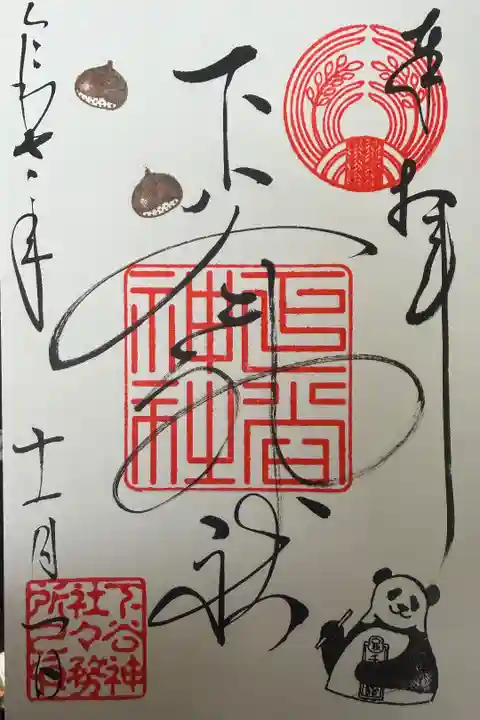 奉拝
下谷神社
下谷
神社
年
十一月一日
下谷神
社々務
所之印